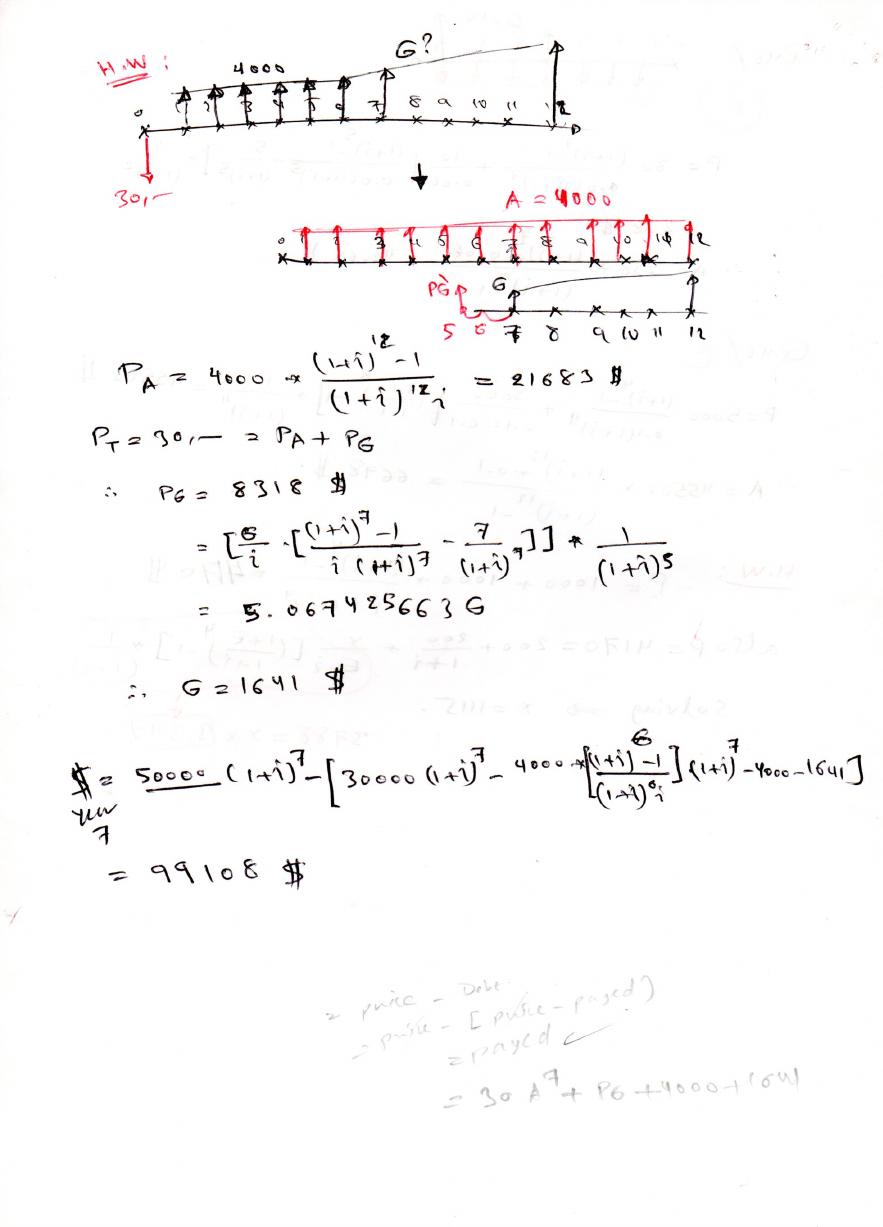 H.W :
G?
4000
0 1 2 3 4 5 6 7 8 9 10 11 12
30,—
A = 4000
0 1 2 3 4 5 6 7 8 9 10 11 12
PG G
5 6 7 8 9 10 11 12
P_A = 4000 * ((1+i)^12 - 1) / ((1+i)^12 i) = 21683 $
P_T = 30,— = P_A + P_G
∴ P_G = 8318 $
= [G/i · [((1+i)^7 - 1) / (i (1+i)^7) - 7/(1+i)^7]] * 1/(1+i)^5
= 5.067425663 G
∴ G = 1641 $
$ year 7 = 50000 (1+i)^7 - [30000 (1+i)^7 - 4000 * [((1+i)^6 - 1) / ((1+i)^6 i)] (1+i)^7 - 4000 - 1641]
= 99108 $
= price - Debt
= price - [price - payed]
= payed ✓
= 30 A^7 + PG + 4000 + 1641